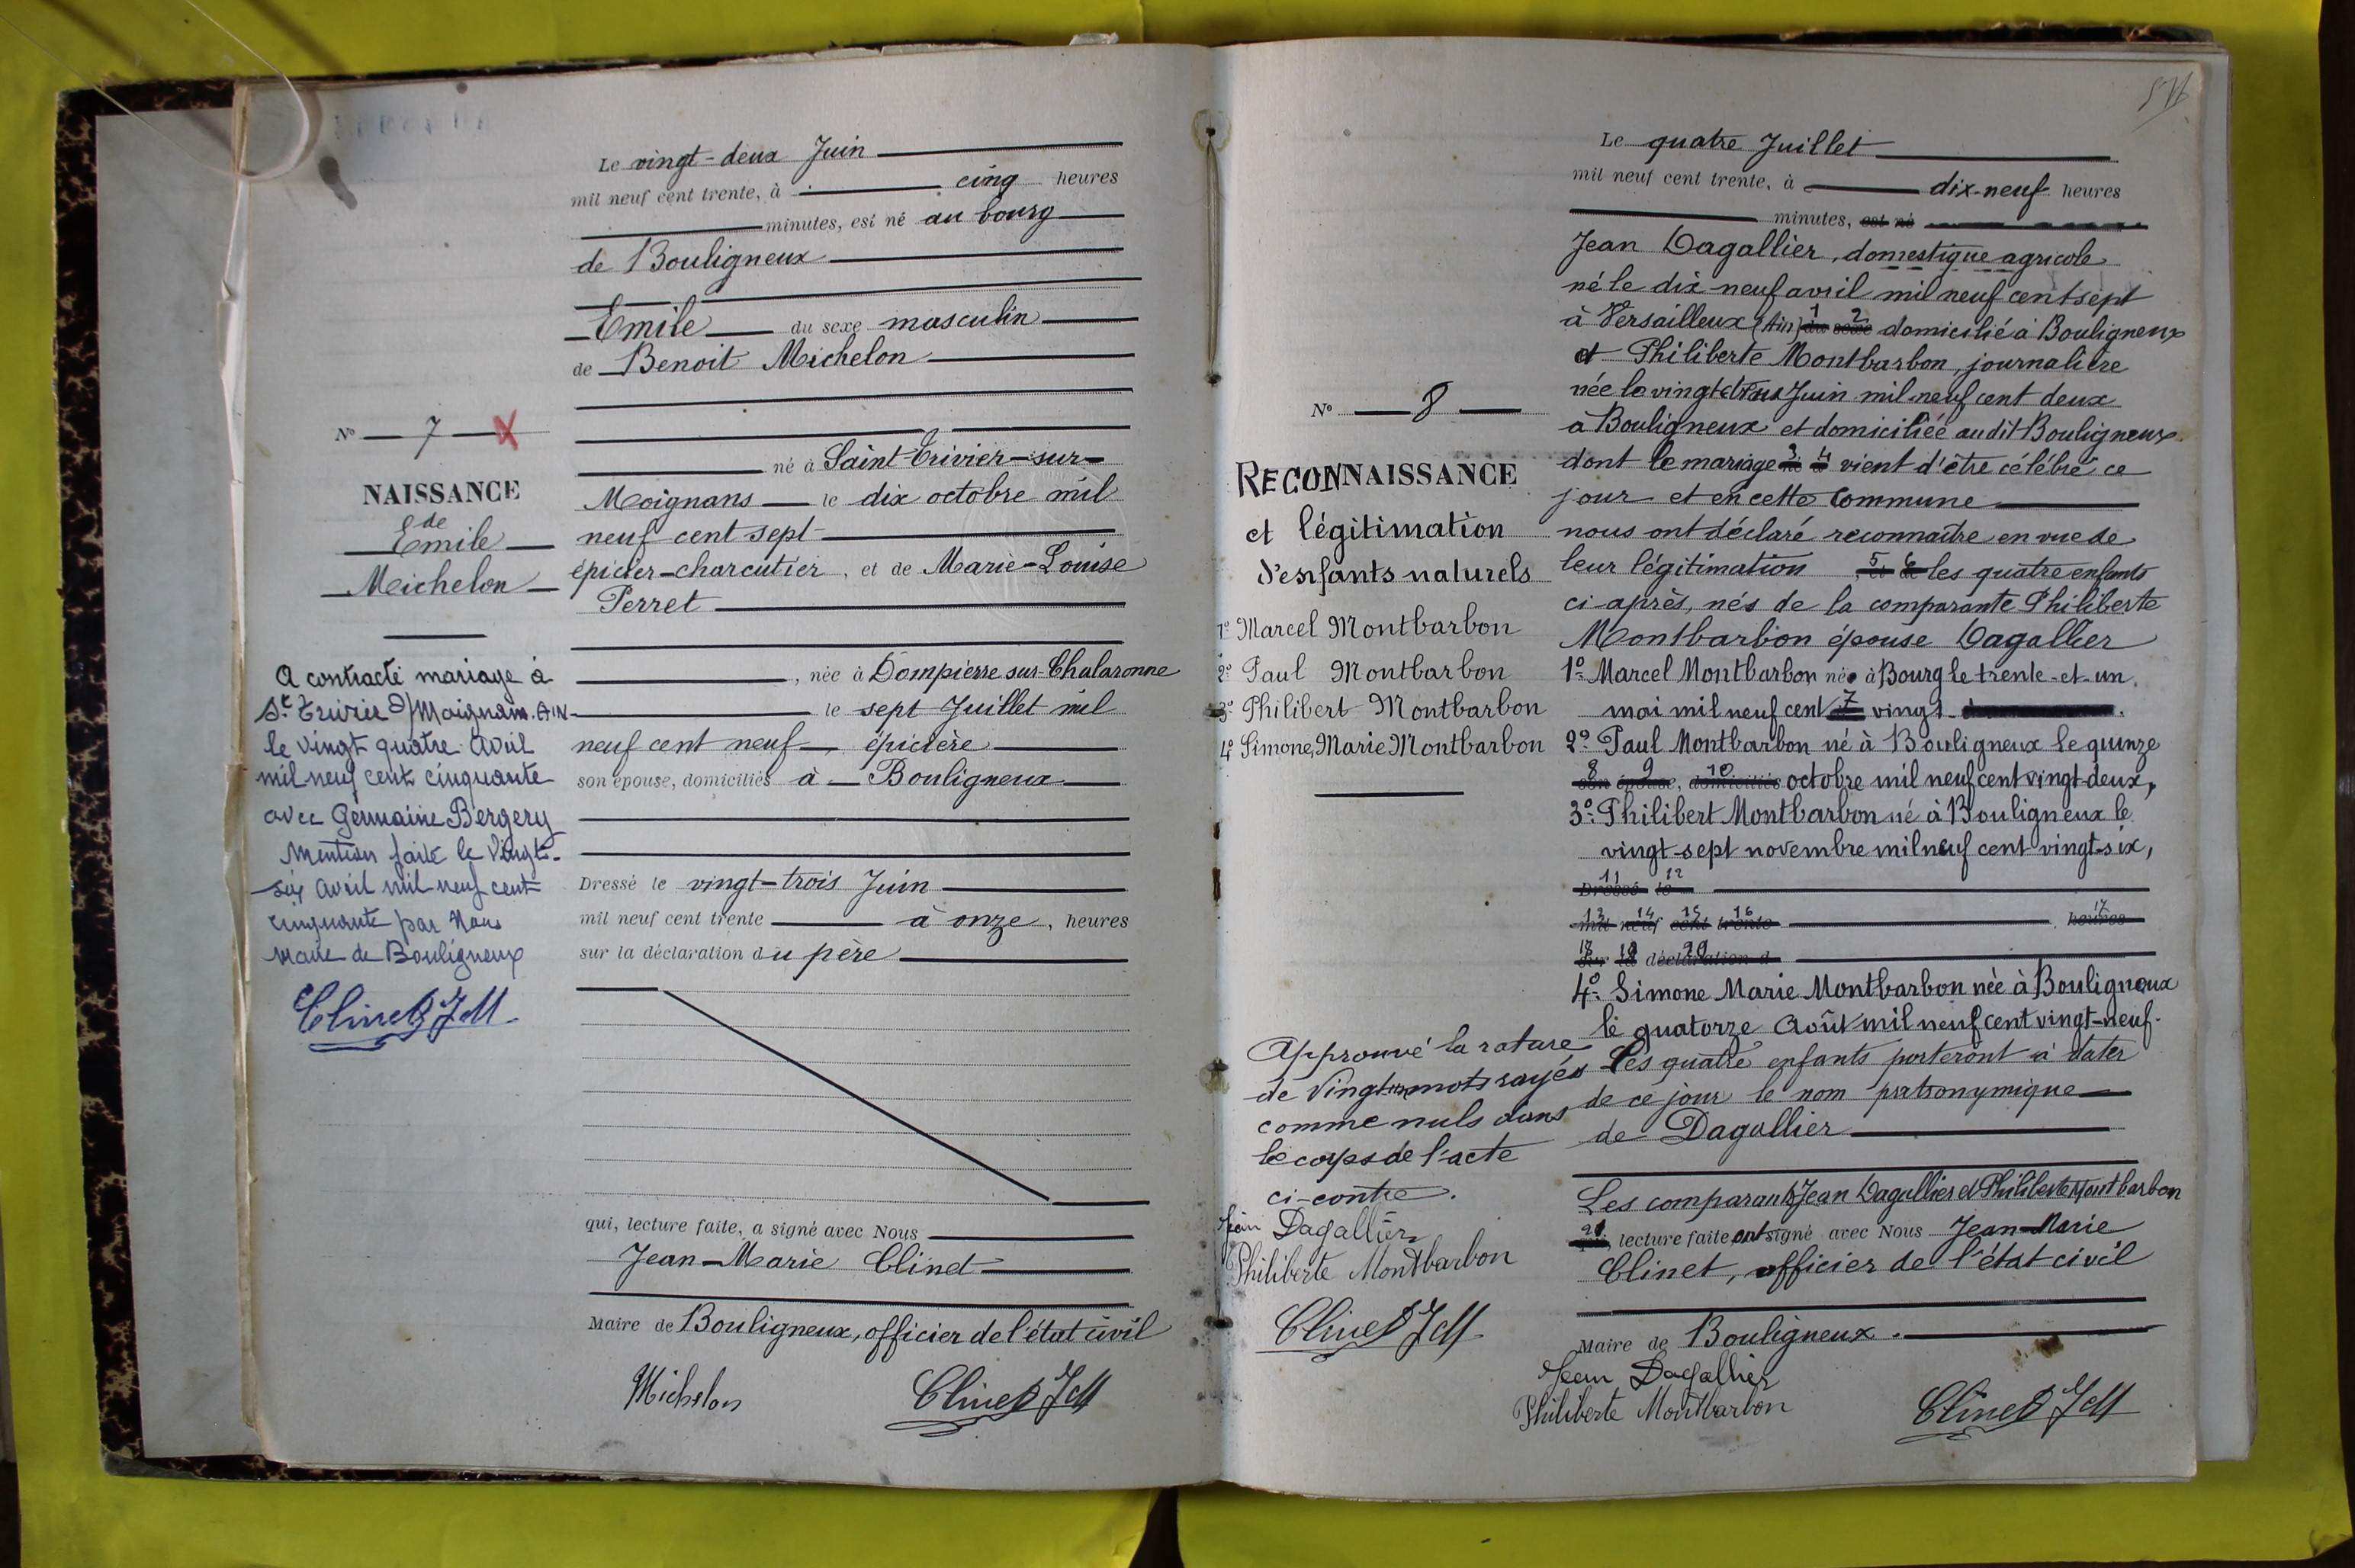 Le vingt-deux Juin
mil neuf cent trente, à cinq heures
minutes, est né au bourg
de Bouligneux
Emile du sexe masculin
de Benoit Michelon
N° 7 X
né à Saint-Trivier-sur-
Moignans le dix octobre mil
neuf cent sept
épicier-charcutier, et de Marie-Louise
Perret
NAISSANCE
de
Emile
Michelon
, née à Dompierre sur-Chalaronne
le sept Juillet mil
neuf cent neuf, épicière
son épouse, domiciliés à Bouligneux
A contracté mariage à
St Trivier s/Moignans. AIN-
le vingt quatre avril
mil neuf cent cinquante
avec Germaine Bergery
Mention faite le Vingt-
six avril mil neuf cent
cinquante par Nous
maire de Bouligneux
Clinet JM
Dressé le vingt-trois Juin
mil neuf cent trente à onze, heures
sur la déclaration du père
qui, lecture faite, a signé avec Nous
Jean-Marie Clinet
Maire de Bouligneux, officier de l'état civil
Michelon Clinet JM
Le quatre Juillet
mil neuf cent trente, à dix-neuf heures
minutes, est né
Jean Dagallier, domestique agricole
né le dix-neuf avril mil neuf cent sept
à Versailleux (Ain) 1 du 2 sexe domicilié à Bouligneux
et Philiberte Montbarbon, journalière
née le vingt-trois Juin mil neuf cent deux
à Bouligneux et domiciliée audit Bouligneux.
dont le mariage 3 4 vient d'être célébré ce
jour et en cette commune
nous ont déclaré reconnaître en vue de
leur légitimation 5 , et 6 de les quatre enfants
ci-après, nés de la comparante Philiberte
Montbarbon épouse Dagallier
1° Marcel Montbarbon né à Bourg le trente-et-un
mai mil neuf cent 7 vingt
2° Paul Montbarbon né à Bouligneux le quinze
8 son 9 épouse, 10 domiciliés octobre mil neuf cent vingt-deux,
3° Philibert Montbarbon né à Bouligneux le
vingt-sept novembre mil neuf cent vingt-six,
11 Dressé 12 le
13 mil 14 neuf 15 cent 16 trente , 17 heures
18 sur 19 la 20 déclaration d
4° Simone Marie Montbarbon née à Bouligneux
le quatorze Août mil neuf cent vingt-neuf.
Les quatre enfants porteront à dater
de ce jour le nom patronymique
de Dagallier
Les comparants Jean Dagallier et Philiberte Montbarbon
21 qui, lecture faite ont signé avec Nous Jean-Marie
Clinet, officier de l'état civil
Maire de Bouligneux.
Jean Dagallier
Philiberte Montbarbon Clinet JM
N° 8
RECONNAISSANCE
et légitimation
d'enfants naturels
1° Marcel Montbarbon
2° Paul Montbarbon
3° Philibert Montbarbon
4° Simone, Marie Montbarbon
Approuvé la rature
de Vingt-un mots rayés
comme nuls dans
le corps de l'acte
ci-contre.
Jean Dagallier
Philiberte Montbarbon
Clinet JM